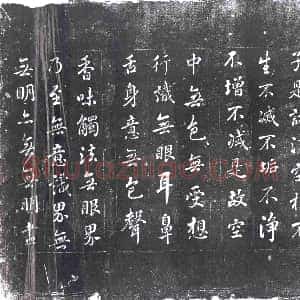 子是諸法空相不
生不滅不垢不淨
不增不減是故空
中無色無受想
行識無眼耳鼻
舌身意無色聲
香味觸法無眼界
乃至無意識界無
無明亦無無明盡